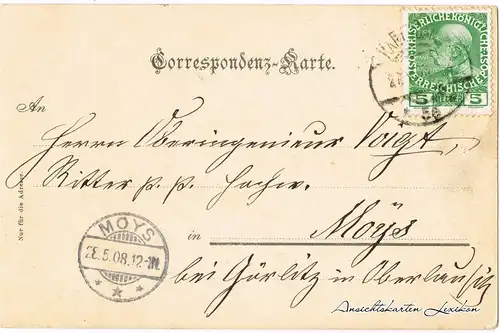 Correspondenz-Karte.
KAISERLICHE KÖNIGLICHE
ÖSTERREICHISCHE POST
5 HELLER 5
An
Herrn Oberingenieur Voigt,
Ritter p. p. Hochw.
in Moys
bei Görlitz in Oberlausitz
Nur für die Adresse.
MOYS
28.5.08.12-
Ansichtskarten Lexikon